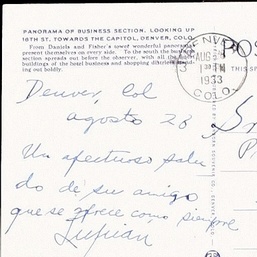 PANORAMA OF BUSINESS SECTION. LOOKING UP
16TH ST. TOWARDS THE CAPITOL, DENVER, COLO.
From Daniels and Fisher's tower wonderful panoramas
present themselves on every side. To the south the business
section spreads out before the observer, with all the
buildings of the hotel business and shopping districts stand-
ing out boldly.
DENVER
AUG 28
1 30 PM
1933
COLO.
POS
THIS SP
Denver, Col
agosto 28
Un afectuoso salu
do de su amigo
que se ofrece como siempre